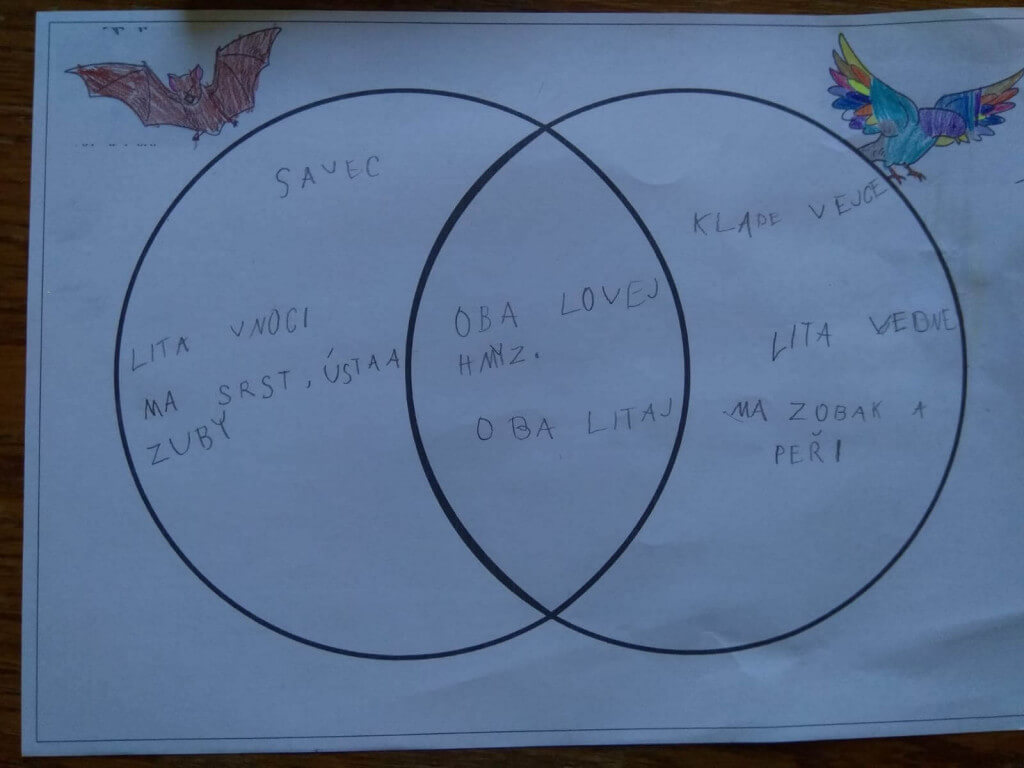 SAVEC
LITA VNOCI
MA SRST, ÚSTA A
ZUBY
OBA LOVEJ
HMYZ.
OBA LITAJ
KLADE VEJCE
LITA VEDNE
MA ZOBAK A
PEŘI